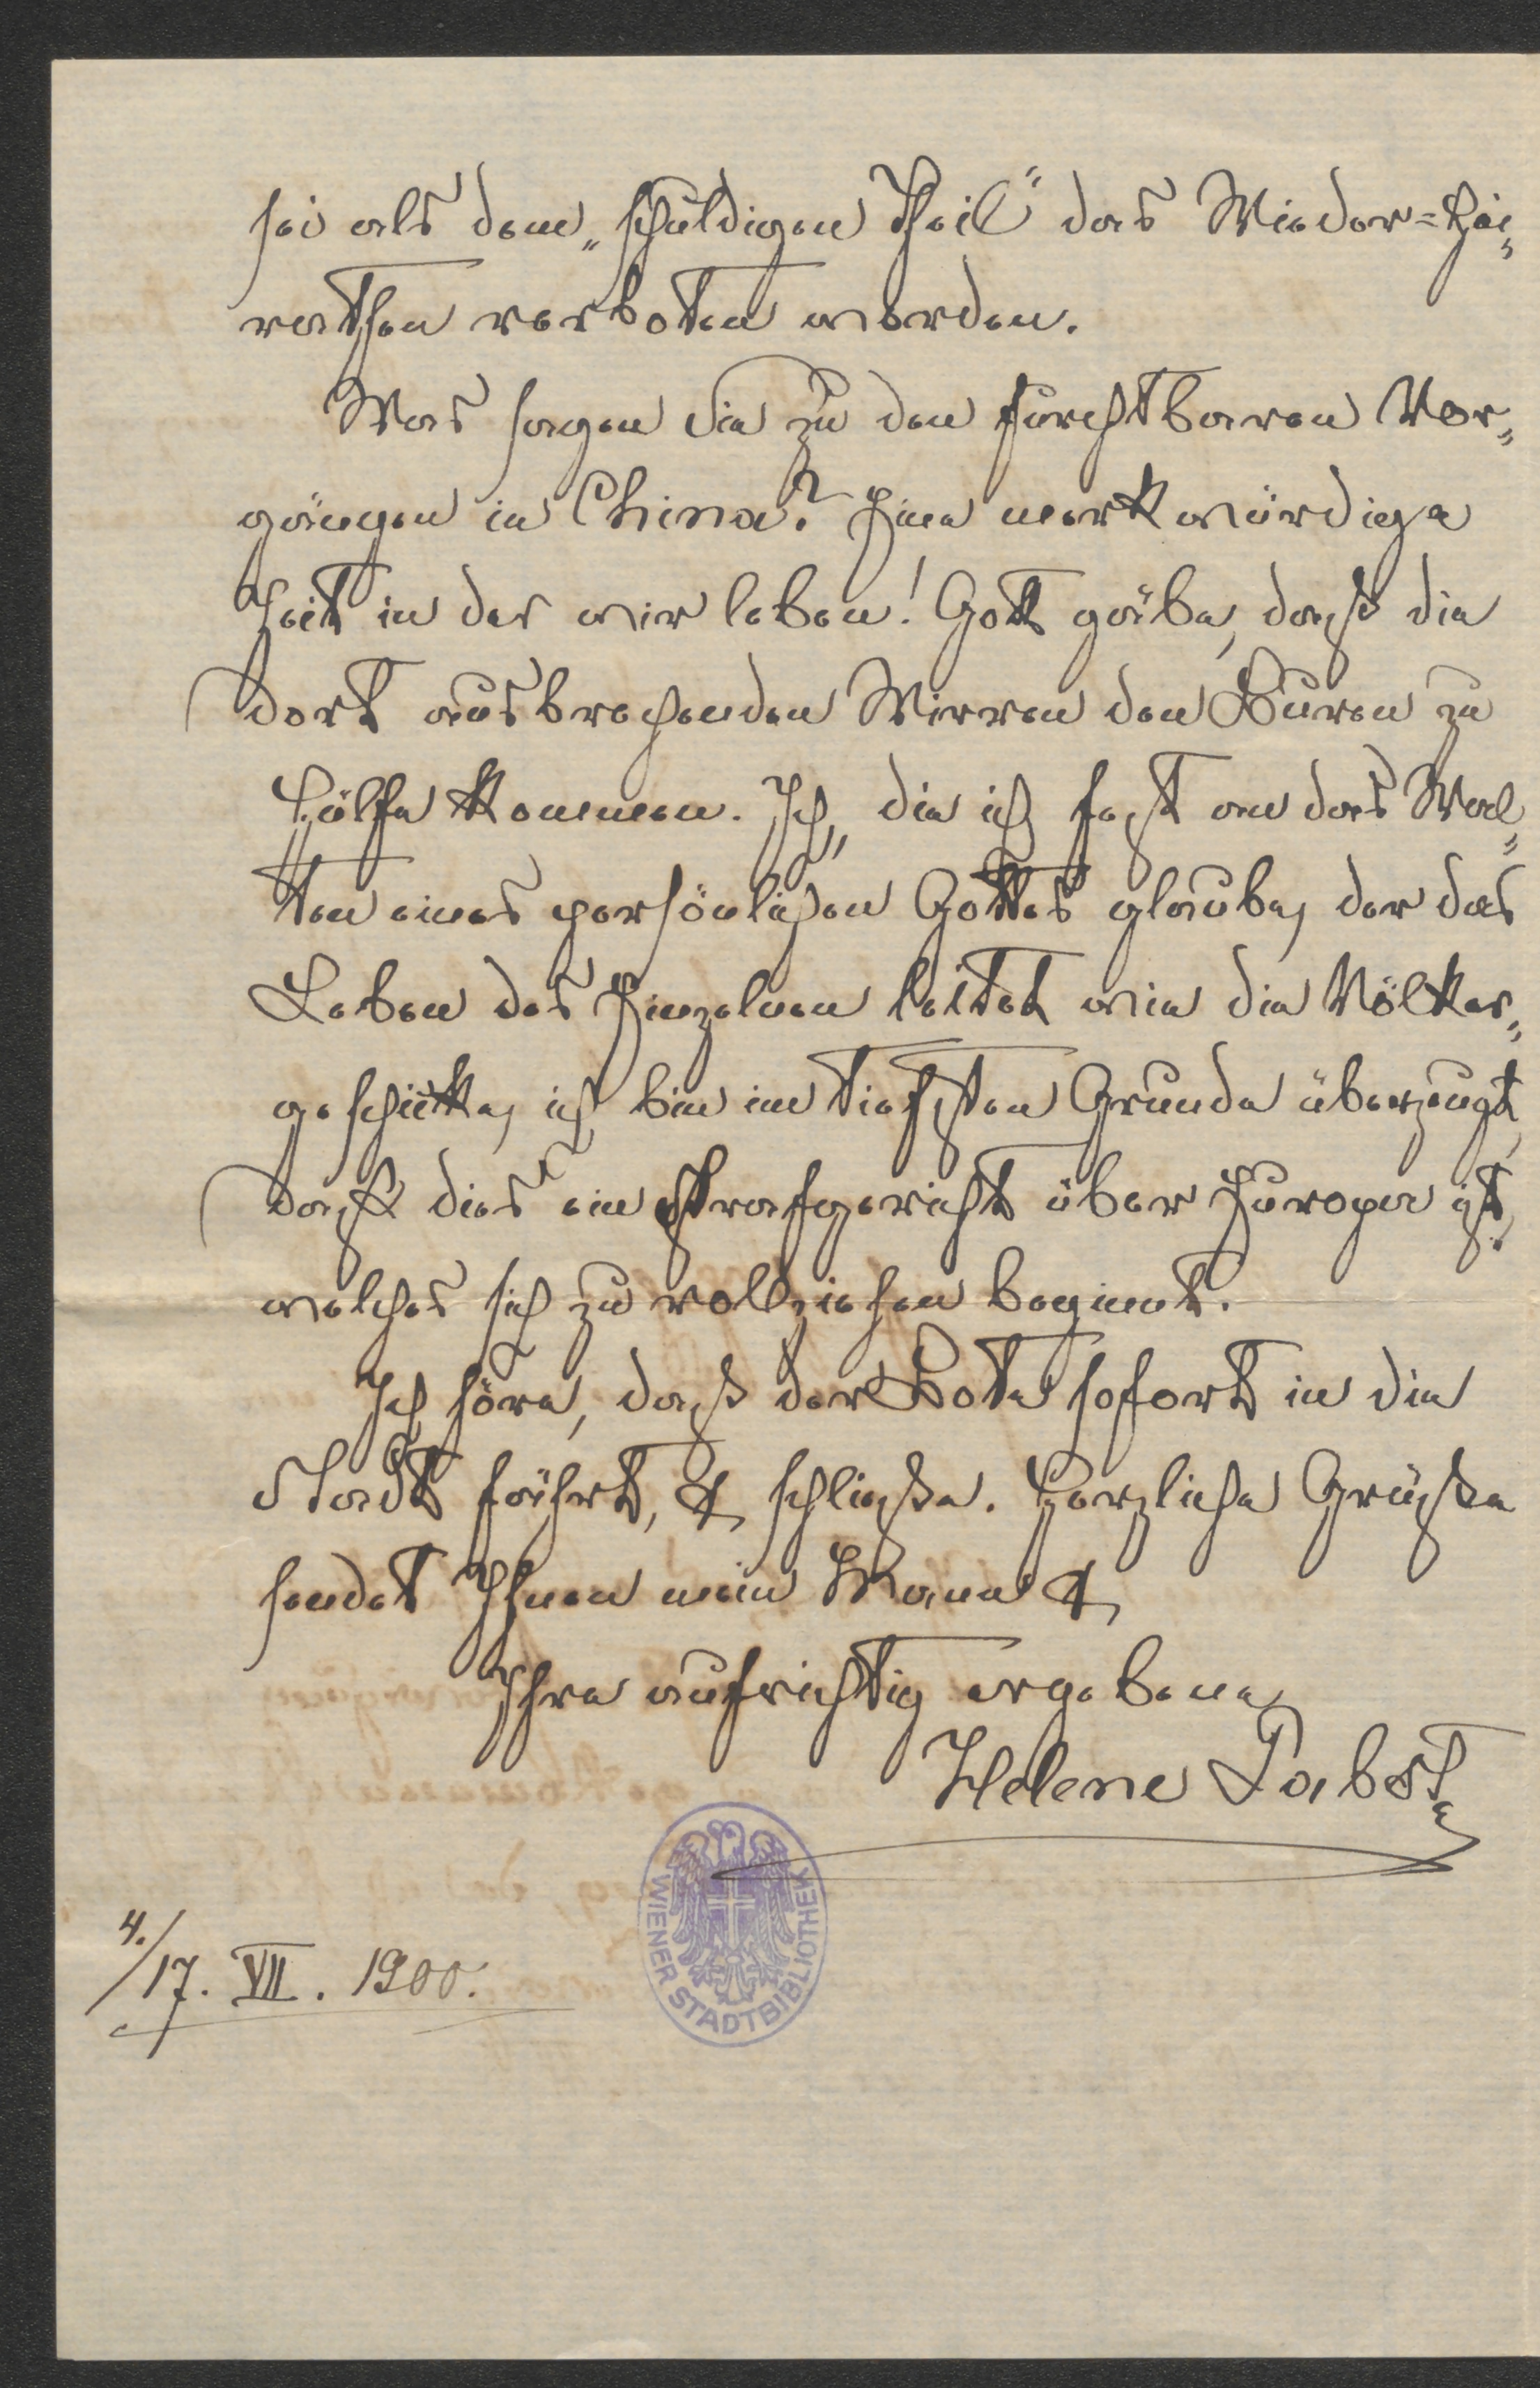 sei als dem „schuldigen Theil“ das Wieder=Hei„
rathen verboten worden.
Was sagen Sie zu den furchtbaren Vor„
gängen in China? Eine merkwürdige
Zeit in der wir leben! Gott gäbe, daß die
dort ausbrechenden Wirren den Buren zu
Hülfe kommen. Ich, die ich fest an das Wal„
ten eines persönlichen Gottes glaube, der das
Leben des Einzelnen leitet wie die Völker„
geschicke, ich bin im tiefsten Grunde überzeugt,
daß dies ein Strafgericht über Europa ist,
welches sich zu vollziehen beginnt.
Ich höre, daß der Bote sofort in die
Stadt fährt, & schließe. Herzliche Grüße
sendet Ihnen mein Mann &
Ihre aufrichtig ergebene
Helene Pabst
4./17. VII. 1900.
WIENER STADTBIBLIOTHEK